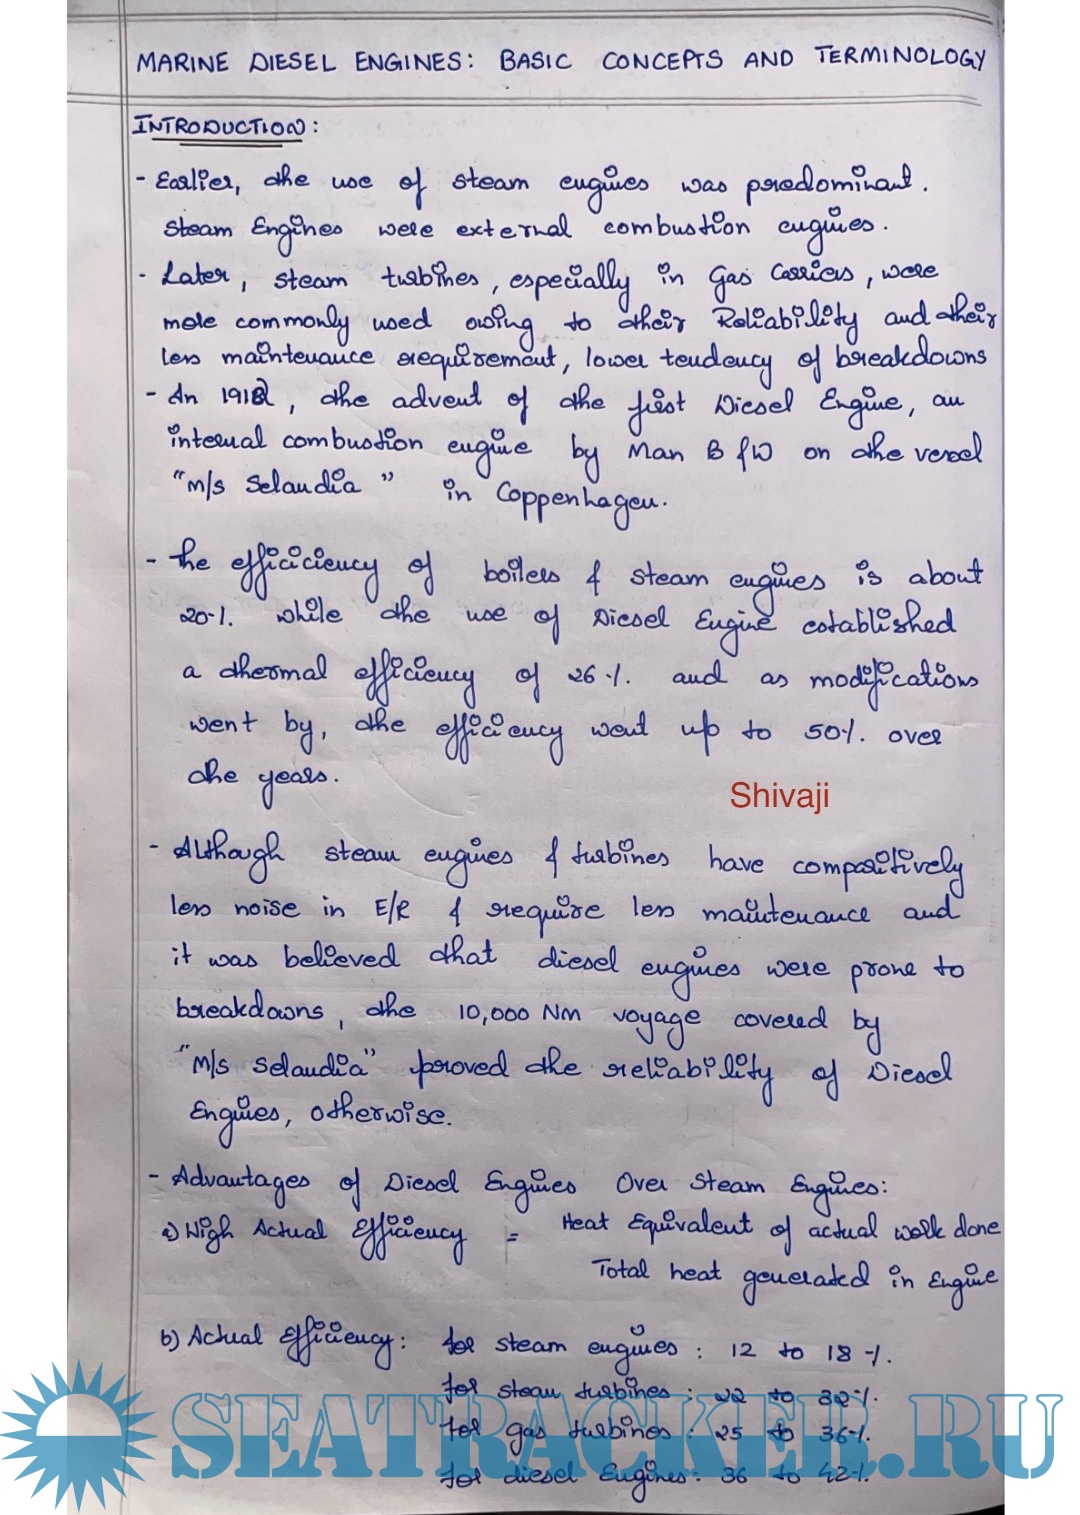 MARINE DIESEL ENGINES: BASIC CONCEPTS AND TERMINOLOGY
INTRODUCTION:
- Earlier, the use of steam engines was predominant.
Steam Engines were external combustion engines.
- Later, steam turbines, especially in Gas Carriers, were
more commonly used owing to their Reliability and their
less maintenance requirement, lower tendency of breakdowns
- In 1912, the advent of the first Diesel Engine, an
internal combustion engine by Man B & W on the vessel
"m/s Selandia" in Coppenhagen.
- The efficiciency of boilers & steam engines is about
20%. while the use of Diesel Engine established
a thermal efficiency of 26%. and as modifications
went by, the efficiency went up to 50%. over
the years.
Shivaji
- Although steam engines & turbines have compartively
less noise in E/R & require less maintenance and
it was believed that diesel engines were prone to
breakdowns, the 10,000 Nm voyage covered by
"M/s Selandia" proved the reliability of Diesel
Engines, otherwise.
- Advantages of Diesel Engines Over Steam Engines:
a) High Actual Efficiency = Heat Equivalent of actual work done
Total heat generated in Engine
b) Actual Efficiency: for steam engines: 12 to 18%.
for steam turbines: 22 to 32%.
for gas turbines: 25 to 36%.
for diesel Engines: 36 to 42%.
SEATRACKER.RU